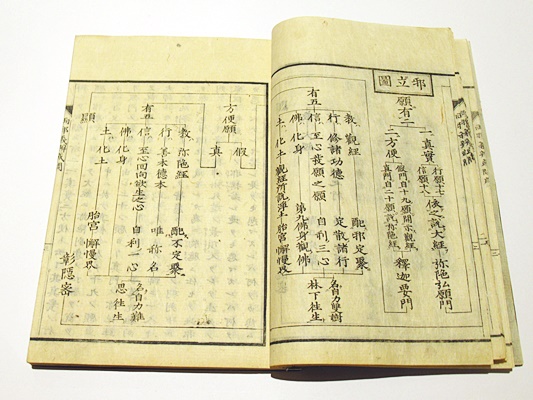 立圖
願有二
一真實
行願十七
信願十八
依之說大經
弥陁弘願門
二方便
假門自十九願開示觀經
真門自二十願說弥陁經
釋迦要門
有五
教 觀經 配邪定聚
行 修諸功德 定散諸行
信 至心發願之願 自利三心
佛 化身 第九佛身觀佛
土 化土 觀經所說淨土 胎宮懈慢界
名自力雙樹
林下往生
方便願
假
真
有五
教 弥陁經 配不定聚
行 善本德本 唯稱名
信 至心回向欲生之心 自利一心
佛 化身
土 化土 胎宮懈慢界
名自力難
思往生
顯
彰隱密